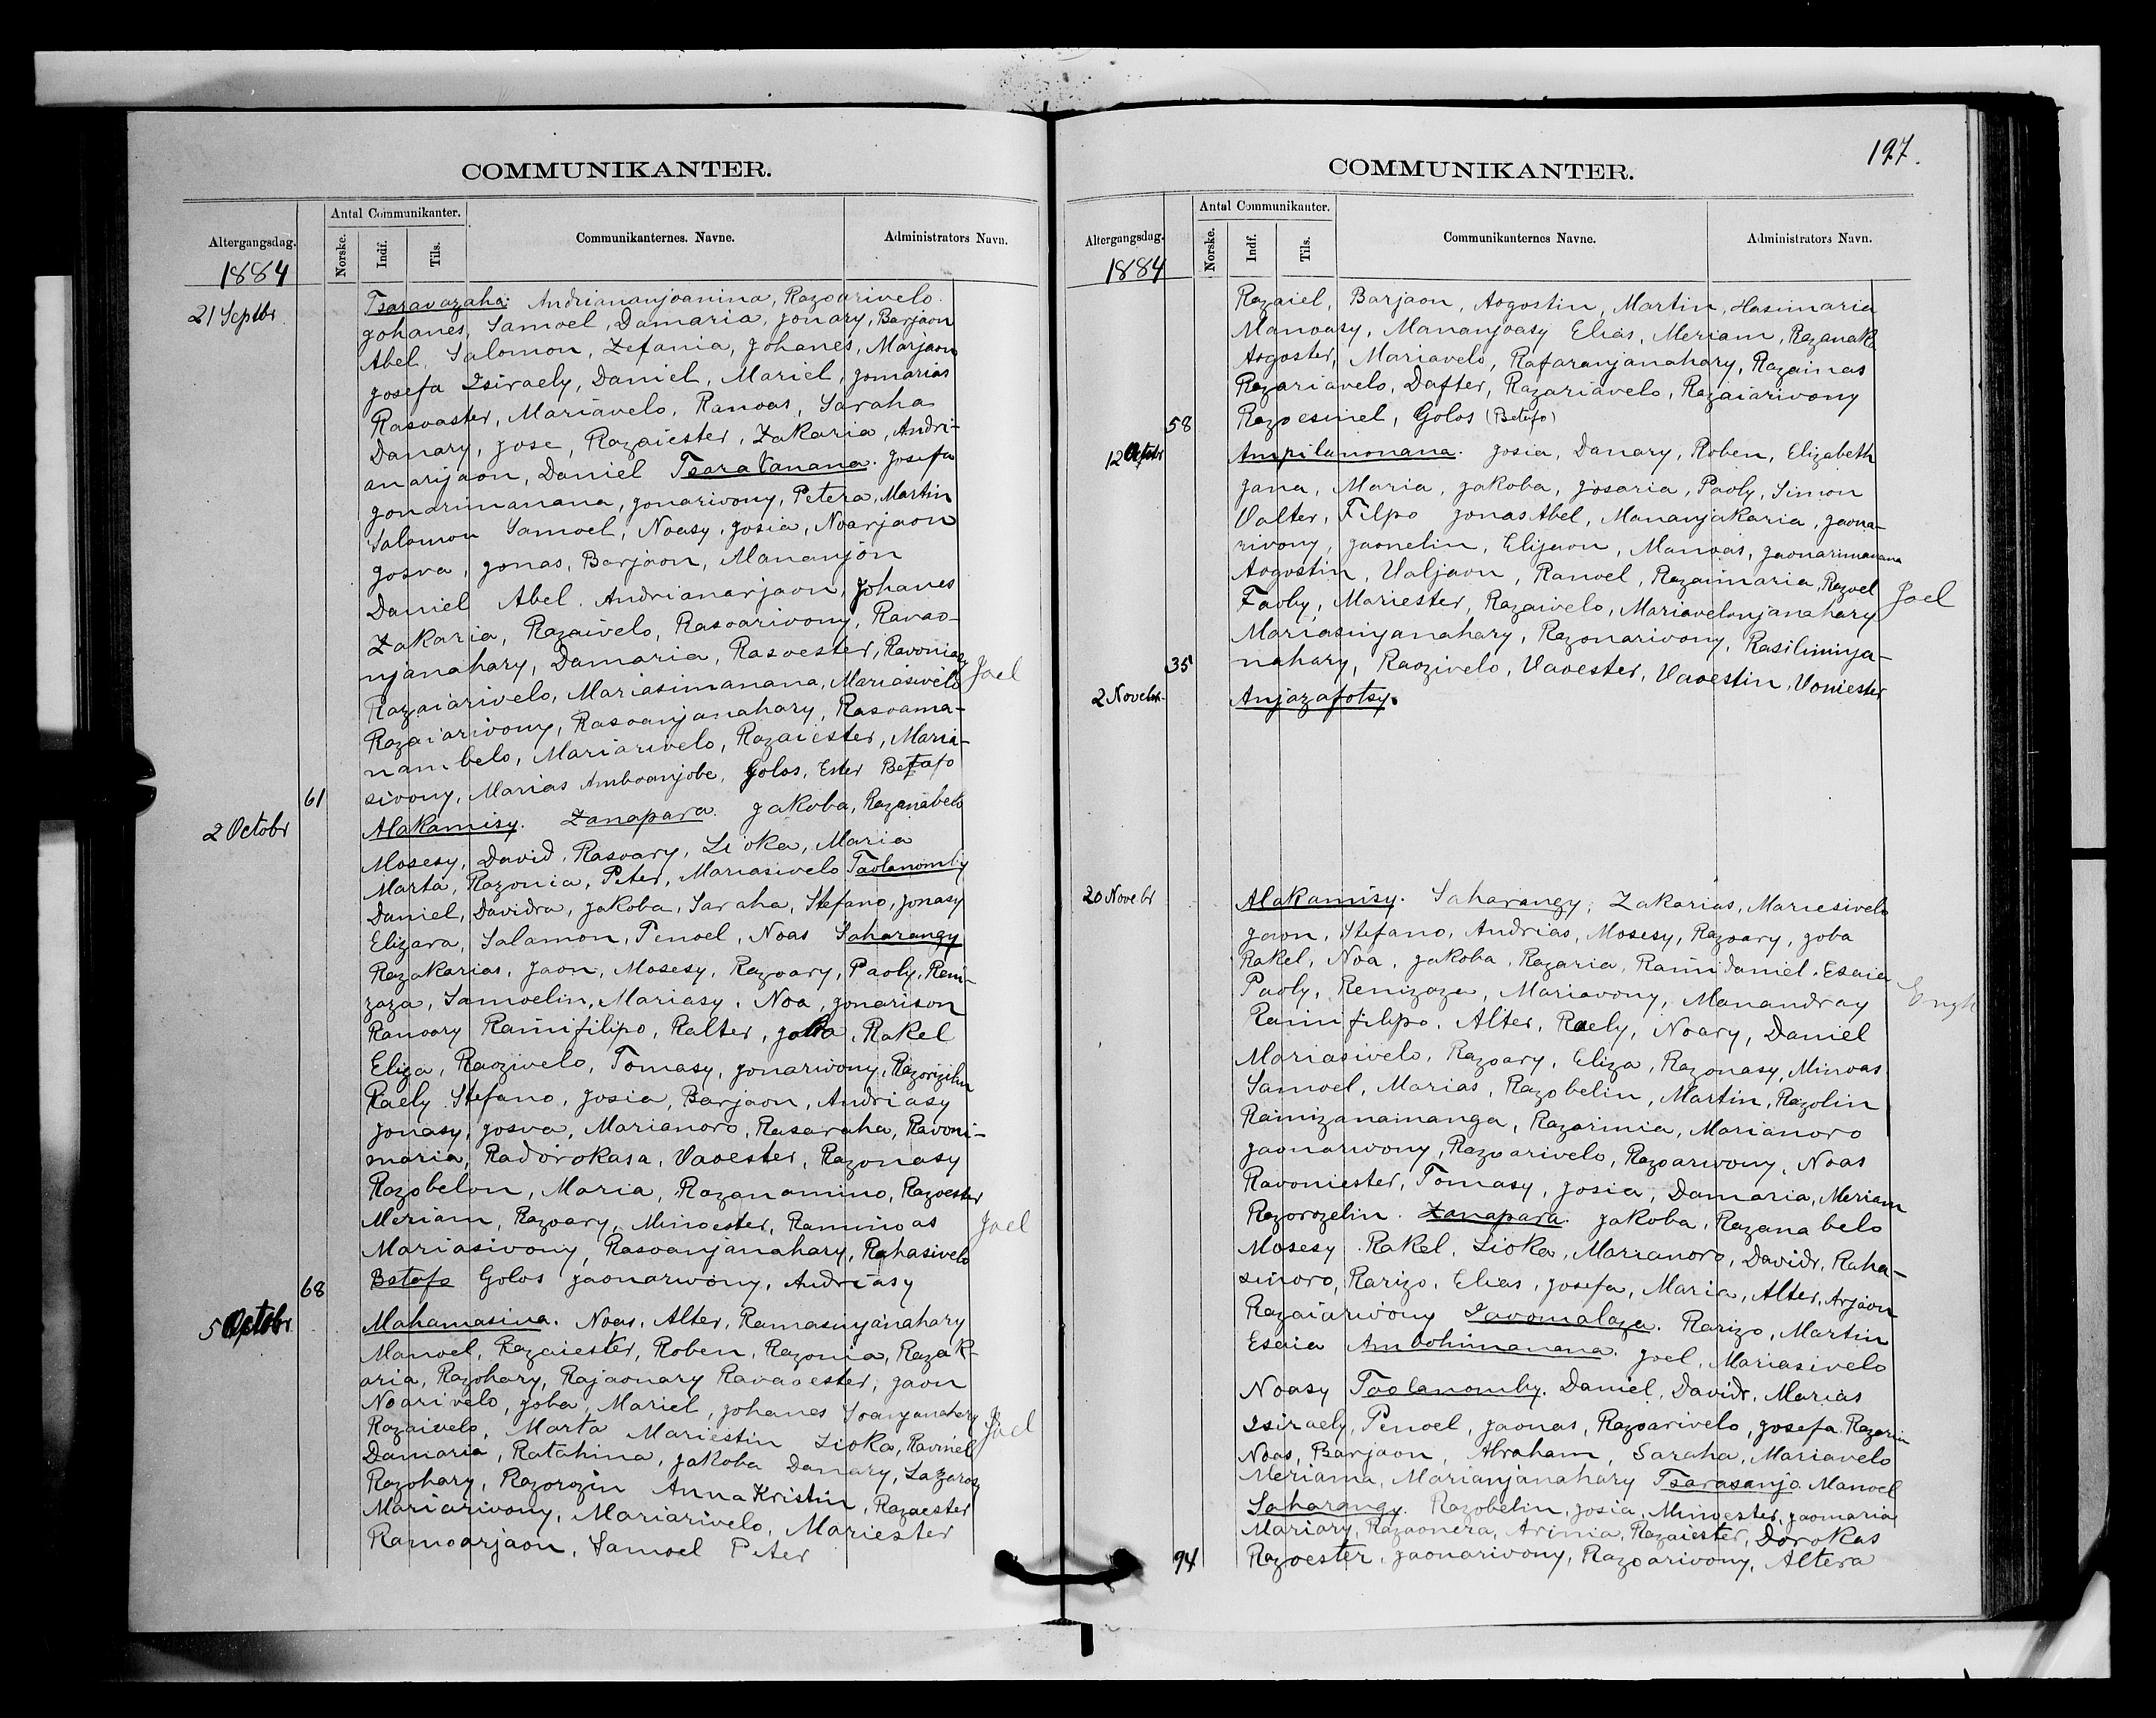 COMMUNIKANTER.
Altergangsdag.
Antal Communikanter.
Norske.
Indf.
Tils.
Communikanternes. Navne.
Administrators Navn.
1884
21 Septbr
Tsaravazaha. Andriananjoanina, Razoarivelo.
Johanes, Samoel, Damaria, Jonary, Barjaon
Abel, Salomon, Zefania, Johanes, Marjaon
Josefa Isiraely, Daniel, Mariel, Jomarias
Rasoaster, Mariavelo, Ranoas, Saraha
Danary, Jose, Razaiester, Zakaria, Andri-
anarijaon, Daniel Tsaratanana. Josefa
Jonarimanana, Jonarivony, Petera, Martin
Salomon Samoel, Noasy, Josia, Noarjaon
Josva, Jonas, Barjaon, Mananjon
Daniel Abel. Andrianarjaon, Johanes
Zakaria, Razaivelo, Rasoarivony, Ravao-
njanahary, Damaria, Rasoester, Ravoniasy
Razaiarivelo, Mariasimanana, Mariasivelo
Joel
Razaiarivony, Rasoanjanahary, Rasoama-
nambelo, Mariarivelo, Razaiester, Maria-
sivony, Marias Amboanjobe, Golos, Ester Betafo
61
2 Octobr
Alakamisy. Zanapara. Jakoba, Razanabelo
Mosesy, David, Rasoary, Lioka, Maria
Marta, Razonia, Peter, Mariasivelo Taolanomby
Daniel, Davidra, Jakoba, Saraha, Stefano, Jonasy
Elizara, Salamon, Penoel, Noas Saharangy
Razakarias, Jaon, Mosesy, Razoary, Paoly, Reni-
zaza, Samoelin, Mariasy, Noa, Jonarison
Ranoary Rainifilipo, Ralter, Joba, Rakel
Eliza, Raozivelo, Tomasy, Jonarivony,
Raely. Stefano, Josia, Barjaon, Andriasy
Jonasy, Josva, Marianoro, Rasaraha, Ravoni-
maria, Radorokasa, Vavester, Razonasy
Razobelon, Maria, Razanamino, Razoester
Meriam, Razoary, Minoester, Raminoas
Joel
Mariasivony, Rasoanjanahary, Rahasivelo
Betafo Golos Jaonarivony, Andriasy
68
5 Octobr
Mahamasina. Noas, Alter, Ramasinjanahary
Manoel, Razaiester, Roben, Razonia, Razak-
aria, Razohary, Rajaonary Ravaoester, Jaon
Noarivelo, Joba, Mariel, Johanes Soanjanahary
Joel
Razaivelo, Marta Mariestin Lioka, Raviniel
Damaria, Ratahina, Jakoba Danary, Lazarosy
Razohary, Razorozin Anna Kristin, Razaester
Mariarivony, Mariarivelo, Mariester
Ramoarjaon, Samoel Peter
197.
COMMUNIKANTER.
Altergangsdag.
Antal Communikanter.
Norske.
Indf.
Tils.
Communikanternes Navne.
Administrators Navn.
1884
Razaiel, Barjaon, Aogostin, Martin, Hasimaria
Manoasy, Mananjoasy Elias, Meriam, Razanak
Aogoster, Mariavelo, Rafaranjanahary, Razaimas
Razariavelo, Dafter, Razariavelo, Razaiarivony
Razoesinel, Golos (Betafo)
58
12 Octobr
Ampilanonana. Josia, Danary, Roben, Elizabeth
Jana, Maria, Jakoba, Josaria, Paoly, Simon
Valter, Filpo Jonas Abel, Mananjakaria, Jaona-
rivony, Jaonelin, Elijaon, Manoas, Jaonarimanana
Aogostin, Valjaon, Ranoel, Razaimaria, Razoel
Joel
Faoby, Mariester, Razaivelo, Mariavelonjanahary
Mariasinjanahary, Razonarivony, Rasiliminja-
nahary, Raozivelo, Vavester, Vavestin, Voniester
35
2 Novebr
Anjazafotsy.
20 Novebr
Alakamisy. Saharangy, Zakarias, Mariesivelo
Jaon, Stefano, Andrias, Mosesy, Razoary, Joba
Rakel, Noa, Jakoba, Razaria, Rainidaniel, Esaia
Paoly, Renizaza, Mariavony, Manandray
Engh
Rainifilipo, Alter, Raely, Noary, Daniel
Mariasivelo, Razoary, Eliza, Razonasy, Minoas
Samoel, Marias, Razobelin, Martin, Razolin
Rainizanamanga, Razarinia, Marianoro
Jaonarivony, Razoarivelo, Razoarivony, Noas
Ravoniester, Tomasy, Josia, Damaria, Meriam
Razorozelin. Zanapara. Jakoba, Razanabelo
Mosesy. Rakel, Lioka, Marianoro, Davidr, Raha-
sinoro, Rarizo, Elias, Josefa, Maria, Alter, Arjaon
Razaiarivony Zavomalaza. Rarizo, Martin
Esaia Ambohimanana. Joel, Mariasivelo
Noasy Taolanomby. Daniel, Davidr, Marias
Isiraely, Penoel, Jaonas, Razoarivelo, Josefa, Razarin
Noas, Barjaon, Abraham, Saraha, Mariavelo
Meriama, Marianjanahary Tsarasanjo. Manoel
Saharangy. Razobelin, Josia, Minoester, Jaomaria
Mariary, Razaonera, Arinia, Razaiester, Dorokas
Razoester, Jaonarivony, Razoarivony, Altera
94